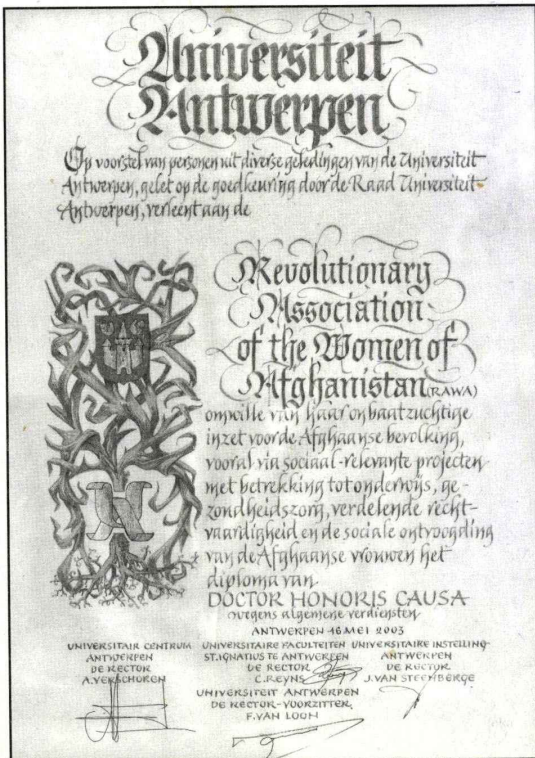 Universiteit
Antwerpen
Op voorstel van personen uit diverse geledingen van de Universiteit
Antwerpen, gelet op de goedkeuring door de Raad Universiteit
Antwerpen, verleent aan de
Revolutionary
Association
of the Women of
Afghanistan (RAWA)
omwille van haar onbaatzuchtige
inzet voor de Afghaanse bevolking,
vooral via sociaal-relevante projecten
met betrekking tot onderwijs, ge-
zondheidszorg, verdelende recht-
vaardigheid en de sociale ontvoogding
van de Afghaanse vrouwen het
diploma van
DOCTOR HONORIS CAUSA
wegens algemene verdiensten
ANTWERPEN 16 MEI 2003
UNIVERSITAIR CENTRUM
ANTWERPEN
DE RECTOR
A. VERSCHOREN
UNIVERSITAIRE FACULTEITEN
ST. IGNATIUS TE ANTWERPEN
DE RECTOR
C. REYNS
UNIVERSITAIRE INSTELLING
ANTWERPEN
DE RECTOR
J. VAN STEENBERGE
UNIVERSITEIT ANTWERPEN
DE RECTOR-VOORZITTER,
F. VAN LOON